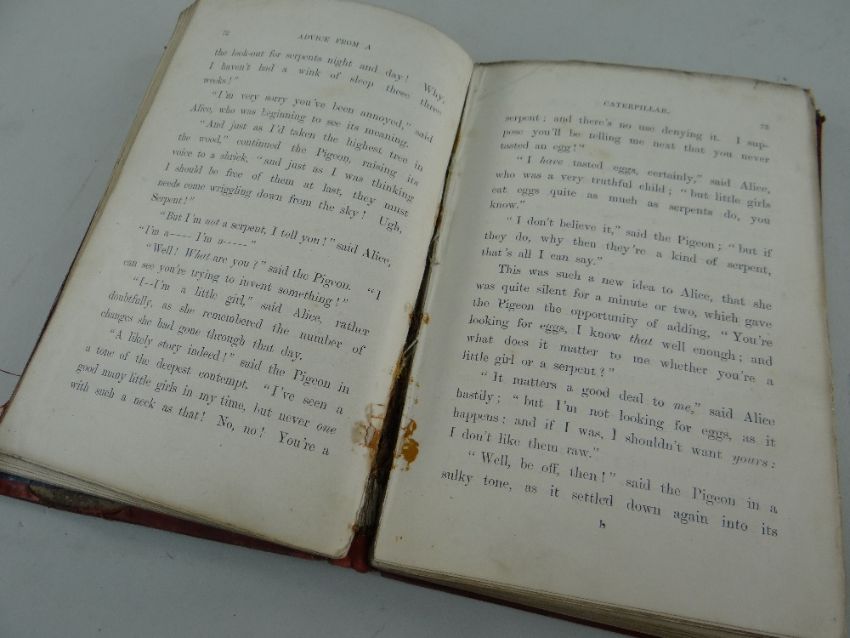 72
ADVICE FROM A
the look-out for serpents night and day! Why,
I haven't had a wink of sleep these three
weeks!"
"I'm very sorry you've been annoyed," said
Alice, who was beginning to see its meaning.
"And just as I'd taken the highest tree in
the wood," continued the Pigeon, raising its
voice to a shriek, "and just as I was thinking
I should be free of them at last, they must
needs come wriggling down from the sky! Ugh,
Serpent!"
"But I'm not a serpent, I tell you!" said Alice,
"I'm a---- I'm a-----"
"Well! What are you?" said the Pigeon. "I
can see you're trying to invent something!"
"I--I'm a little girl," said Alice, rather
doubtfully, as she remembered the number of
changes she had gone through that day.
"A likely story indeed!" said the Pigeon in
a tone of the deepest contempt. "I've seen a
good many little girls in my time, but never one
with such a neck as that! No, no! You're a
CATERPILLAR.
73
serpent; and there's no use denying it. I sup-
pose you'll be telling me next that you never
tasted an egg!"
"I have tasted eggs, certainly," said Alice,
who was a very truthful child; "but little girls
eat eggs quite as much as serpents do, you
know."
"I don't believe it," said the Pigeon; "but if
they do, why then they're a kind of serpent,
that's all I can say."
This was such a new idea to Alice, that she
was quite silent for a minute or two, which gave
the Pigeon the opportunity of adding, "You're
looking for eggs, I know that well enough; and
what does it matter to me whether you're a
little girl or a serpent?"
"It matters a good deal to me," said Alice
hastily; "but I'm not looking for eggs, as it
happens; and if I was, I shouldn't want yours:
I don't like them raw."
"Well, be off, then!" said the Pigeon in a
sulky tone, as it settled down again into its